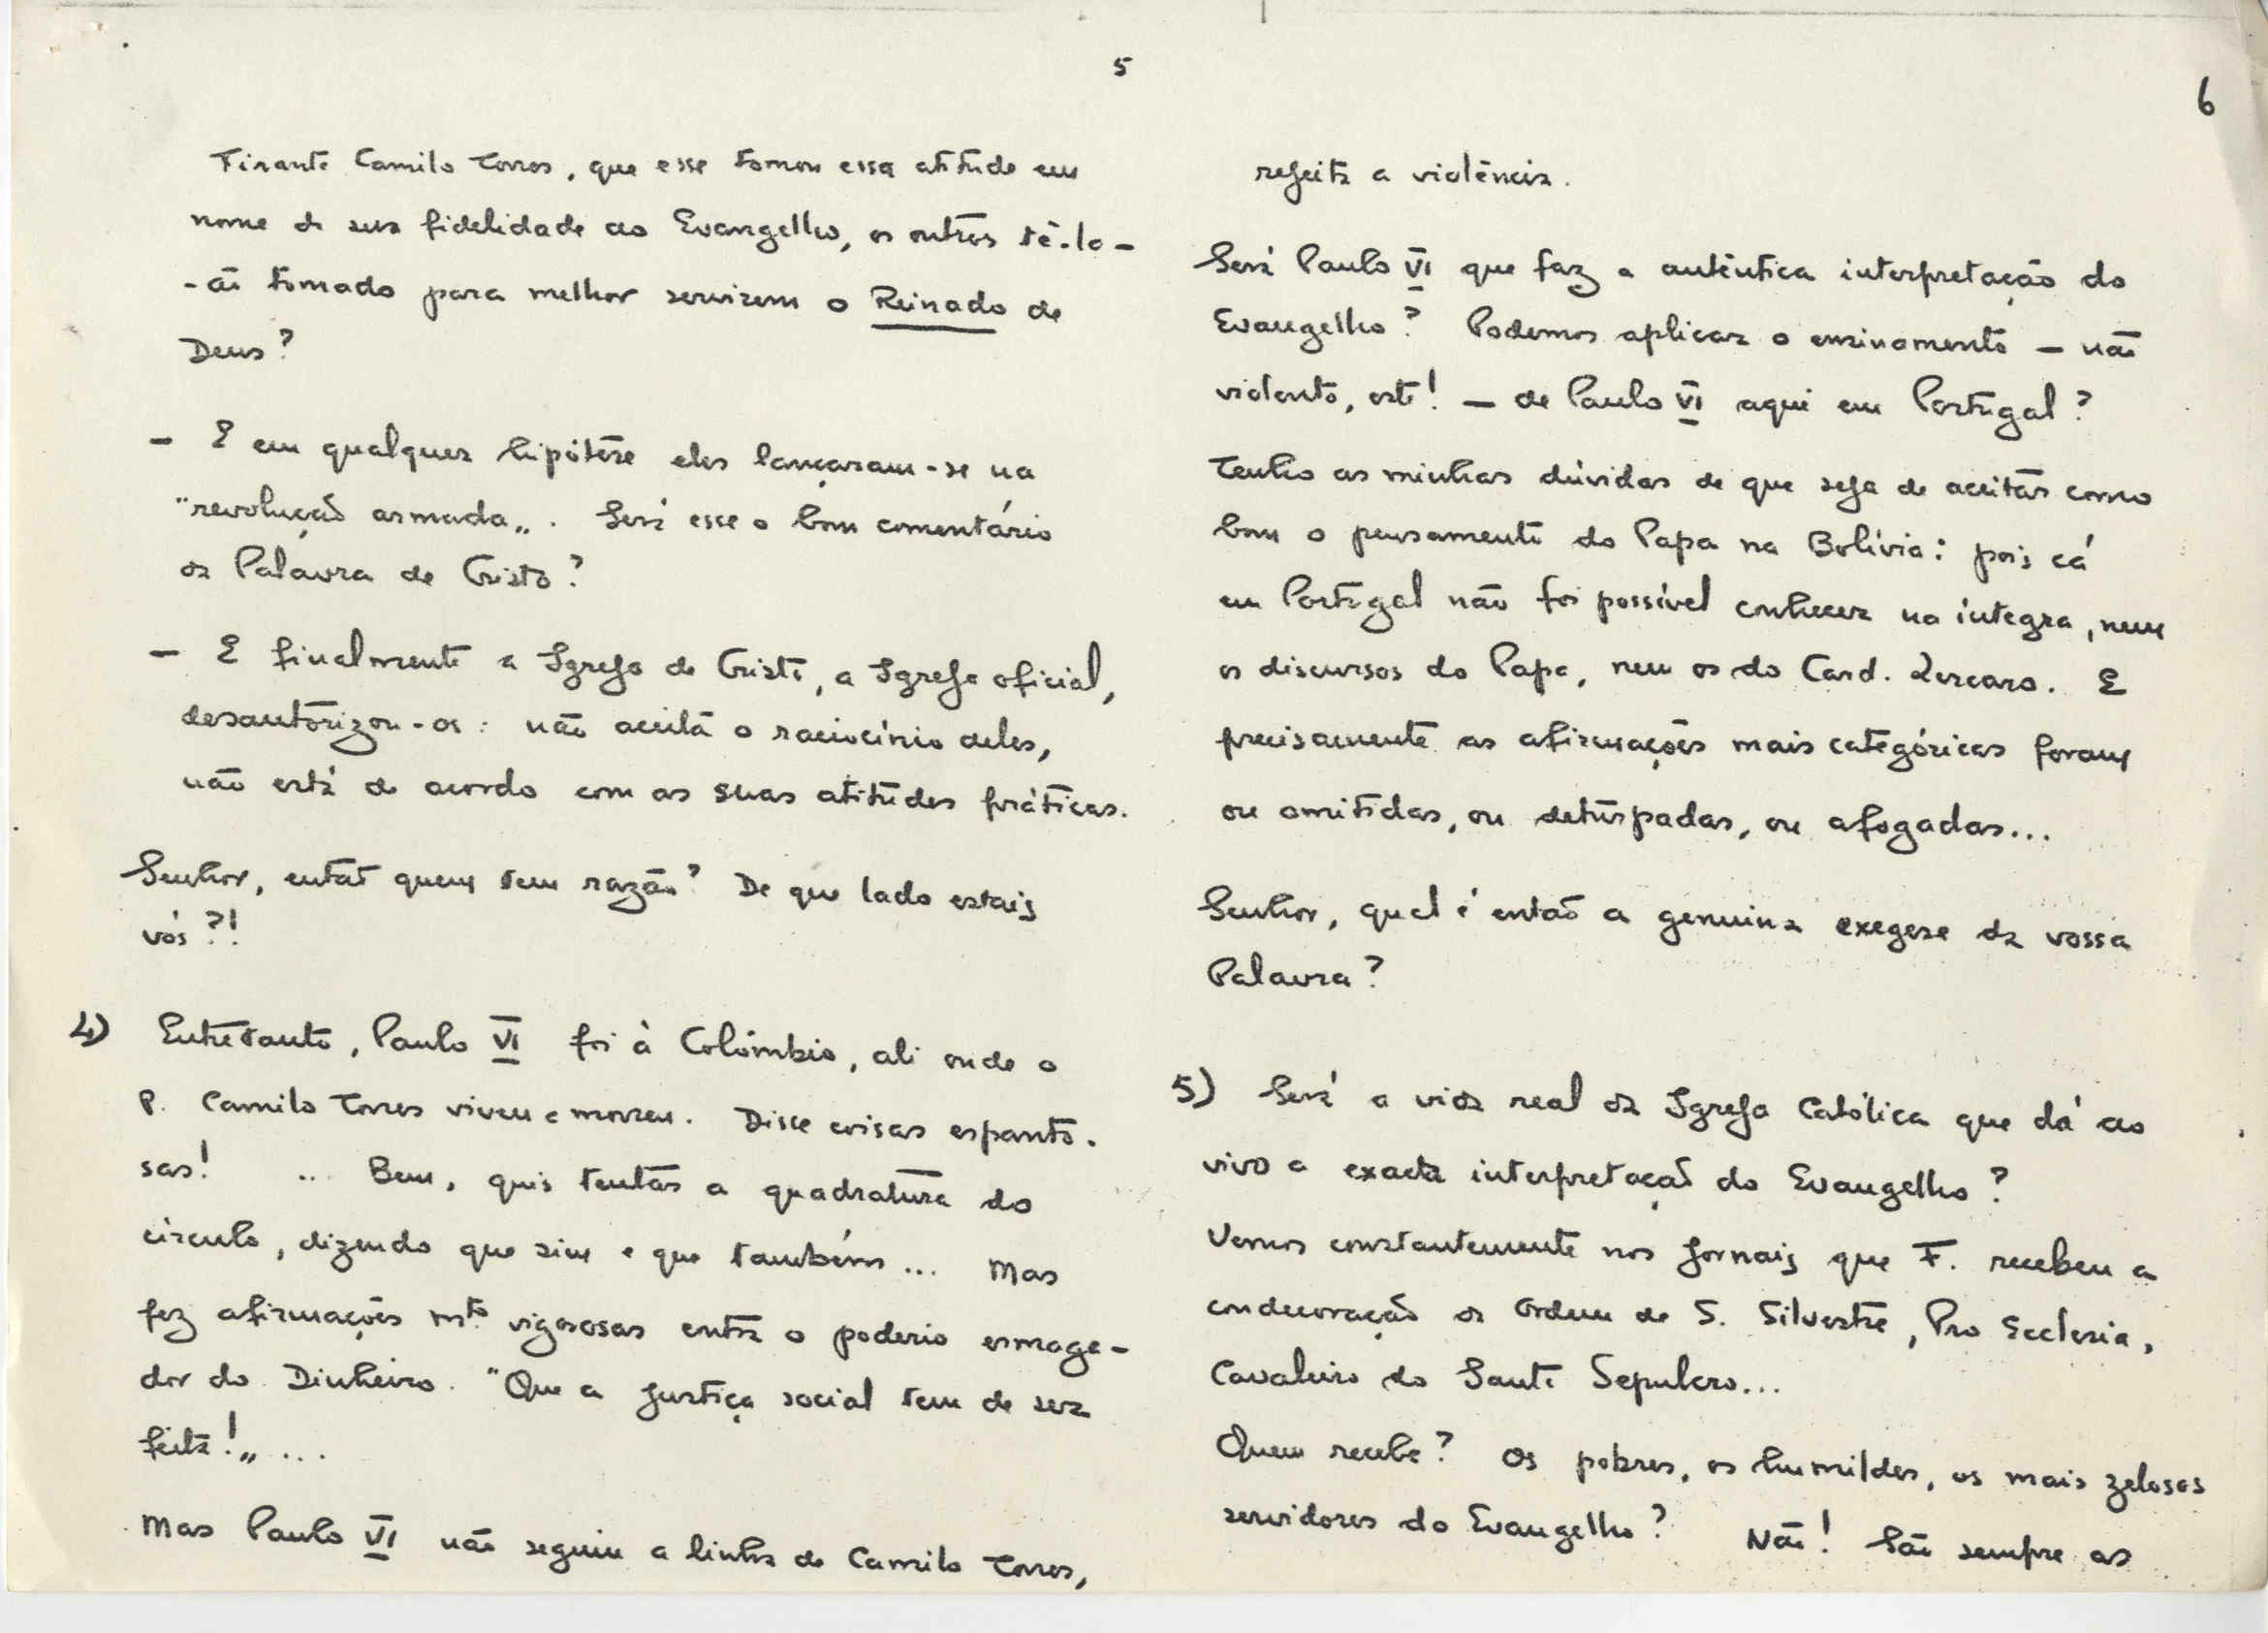 5
Tirante Camilo Torres, que esse tomou essa atitude em
nome da sua fidelidade ao Evangelho, os outros tê-lo-
-ão tomado para melhor servirem o Reinado de
Deus?
- E em qualquer hipótese eles lançaram-se na
"revolução armada„. Será esse o bom comentário
da Palavra de Cristo?
- E finalmente a Igreja de Cristo, a Igreja oficial,
desautorizou-os: não aceita o raciocínio deles,
não está de acordo com as suas atitudes práticas.
Senhor, então quem tem razão? De que lado estais
vós?!
4) Entretanto, Paulo VI foi à Colômbia, ali onde o
P. Camilo Torres viveu e morreu. Disse coisas espanto-
sas! ... Bem, quis tentar a quadratura do
círculo, dizendo que sim e que também... Mas
fez afirmações mto vigorosas contra o poderio esmaga-
dor do Dinheiro. "Que a justiça social tem de ser
feita!„ ...
Mas Paulo VI não seguiu a linha de Camilo Torres,
6
rejeita a violência.
Será Paulo VI que faz a autêntica interpretação do
Evangelho? Podemos aplicar o ensinamento - não
violento, este! - de Paulo VI aqui em Portugal?
Tenho as minhas dúvidas de que seja de aceitar como
bom o pensamento do Papa na Bolívia: pois cá
em Portugal não foi possível conhecer na íntegra, nem
os discursos do Papa, nem os do Card. Lercaro. E
precisamente as afirmações mais categóricas foram
ou omitidas, ou deturpadas, ou afogadas...
Senhor, qual é então a genuina exegese da vossa
Palavra?
5) Será a vida real da Igreja Católica que dá ao
vivo a exacta interpretação do Evangelho?
Vemos constantemente nos jornais que F. recebeu a
condecoração da Ordem de S. Silvestre, Pro Ecclesia,
Cavaleiro do Santo Sepulcro...
Quem recebe? Os pobres, os humildes, os mais zelosos
servidores do Evangelho? Não! São sempre os